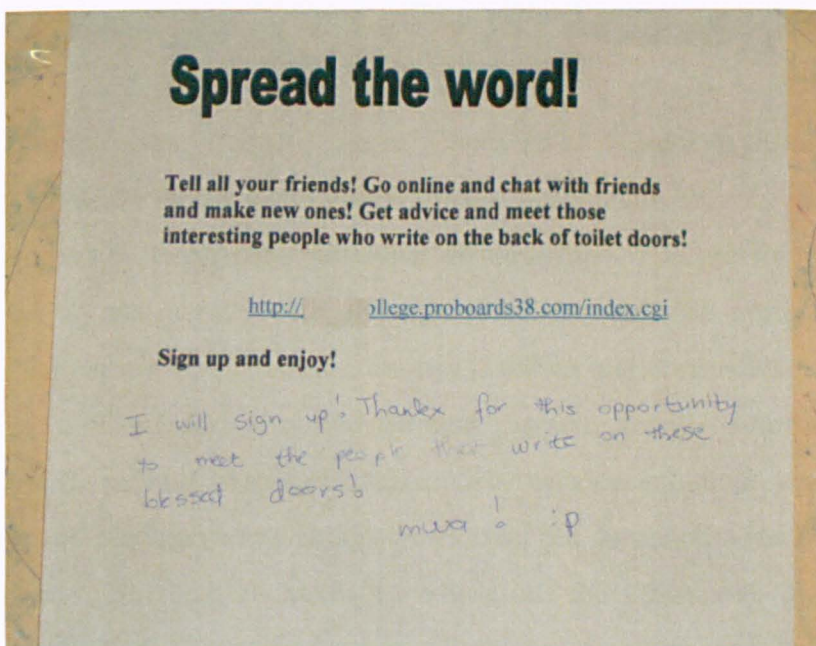 Spread the word!
Tell all your friends! Go online and chat with friends
and make new ones! Get advice and meet those
interesting people who write on the back of toilet doors!
http:// ollege.proboards38.com/index.cgi
Sign up and enjoy!
I will sign up! Thankx for this opportunity
to meet the people that write on these
blessed doors!
mwa! :p